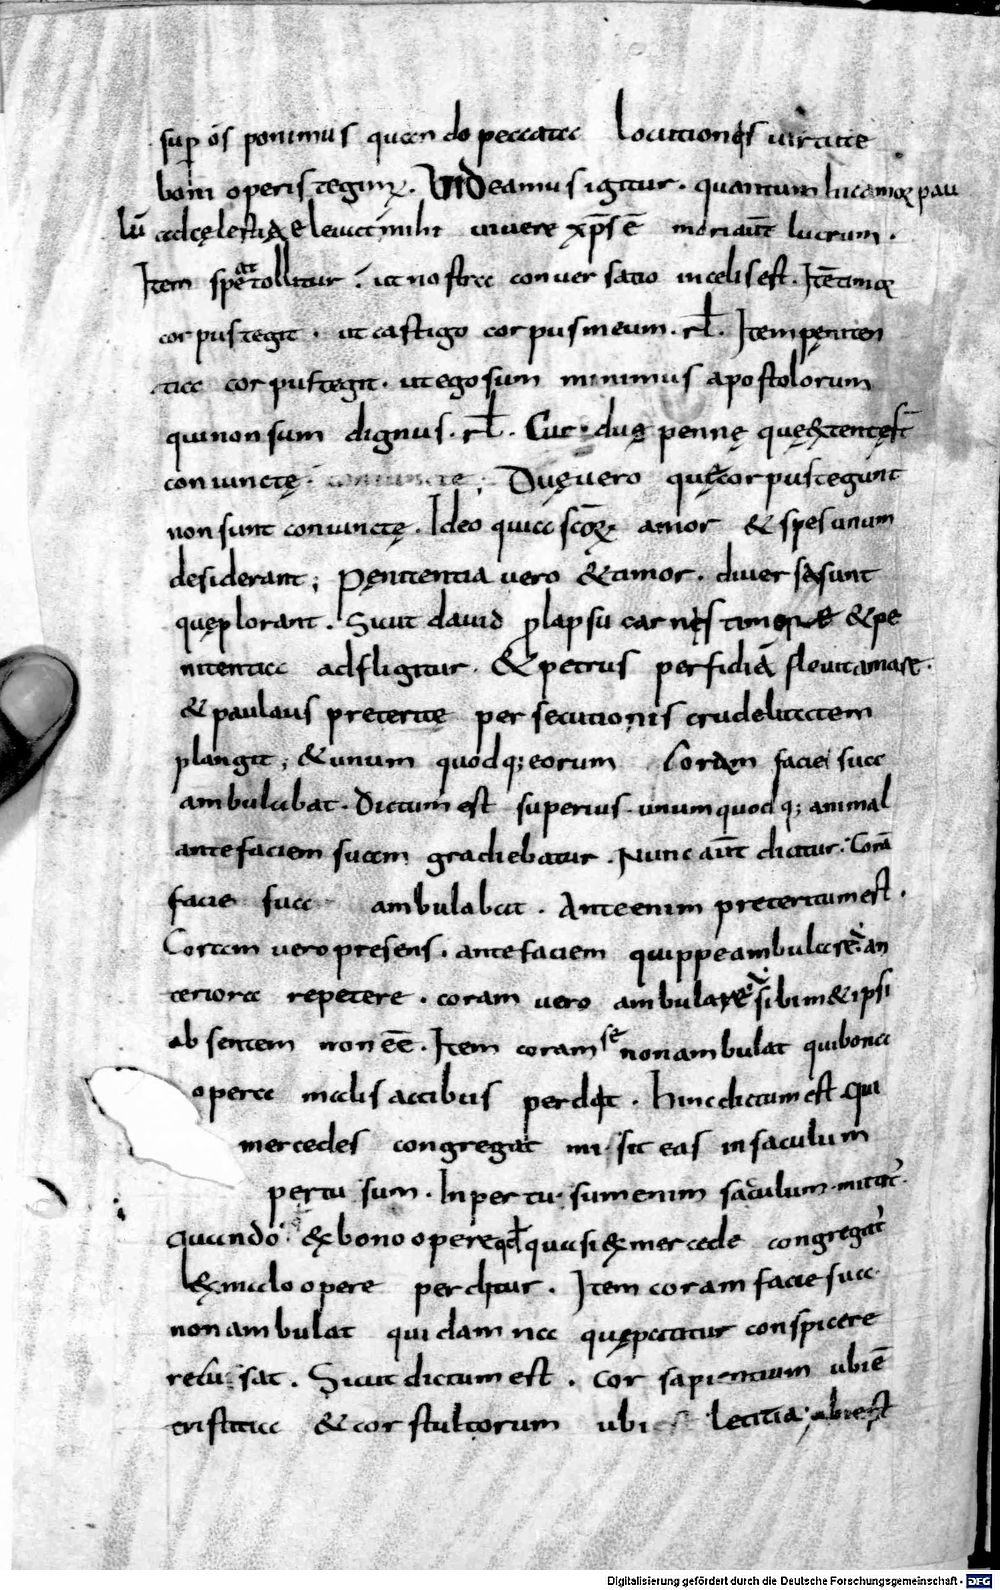 sup os ponimus quando peccata locutionis virtute
boni operis tegimꝰ. VIDeamus igitur. quantum hic amor pau
lū ad cęlestia eleuat mihi uiuere xps ē mori aūt lucrum.
Item spe attollitur. ut nostra conuersatio in celis est. Itē timor
corpus tegit. ut castigo corpus meum. rl. Item pęniten
tia corpus tegit. ut ego sum minimus apostolorum
qui non sum dignus. rl. Cur duę pennę quę extentę st
coniunctę. Duę uero quę corpus tegunt
non sunt coniunctę. Ideo quia scōrꝝ amor & spes unum
desiderant; Pęnitentia uero & timor. diuersa sunt
quę plorant. Sicut dauid prolapsu carnis timore & pe
nitentia adfligitur. & petrus perfidiā fleuit amare.
& paulus preterite persecutionis crudelitatem
plangit; & unum quodq; eorum Coram facie sua
ambulabat. Dictum est superius. unum quodq; animal
ante faciem suam gradiebatur. Nunc aūt dicitur. Corā
facie sua ambulabat. Ante enim preteritum est.
Coram uero presens. ante faciem quippe ambulare. an
teriora repetere. coram uero ambulare. sibim&ipsi
absentem non eē. Item coram se non ambulat qui bona
opera malis actibus perdit. hinc dictum est. Qui
mercedes congregat misit eas in saculum
pertusum. In pertusum enim saculum mittit.
Quando ex bono opere qđ quasi ex mercede congregat
ex malo opere perditur. Item coram facie sua
non ambulat qui damna quę patitur conspicere
recusat. Sicut dictum est. Cor sapientium ubi ē
tristitia & cor stultorum ubi letitia; ubi est
Digitalisierung gefördert durch die Deutsche Forschungsgemeinschaft - DFG